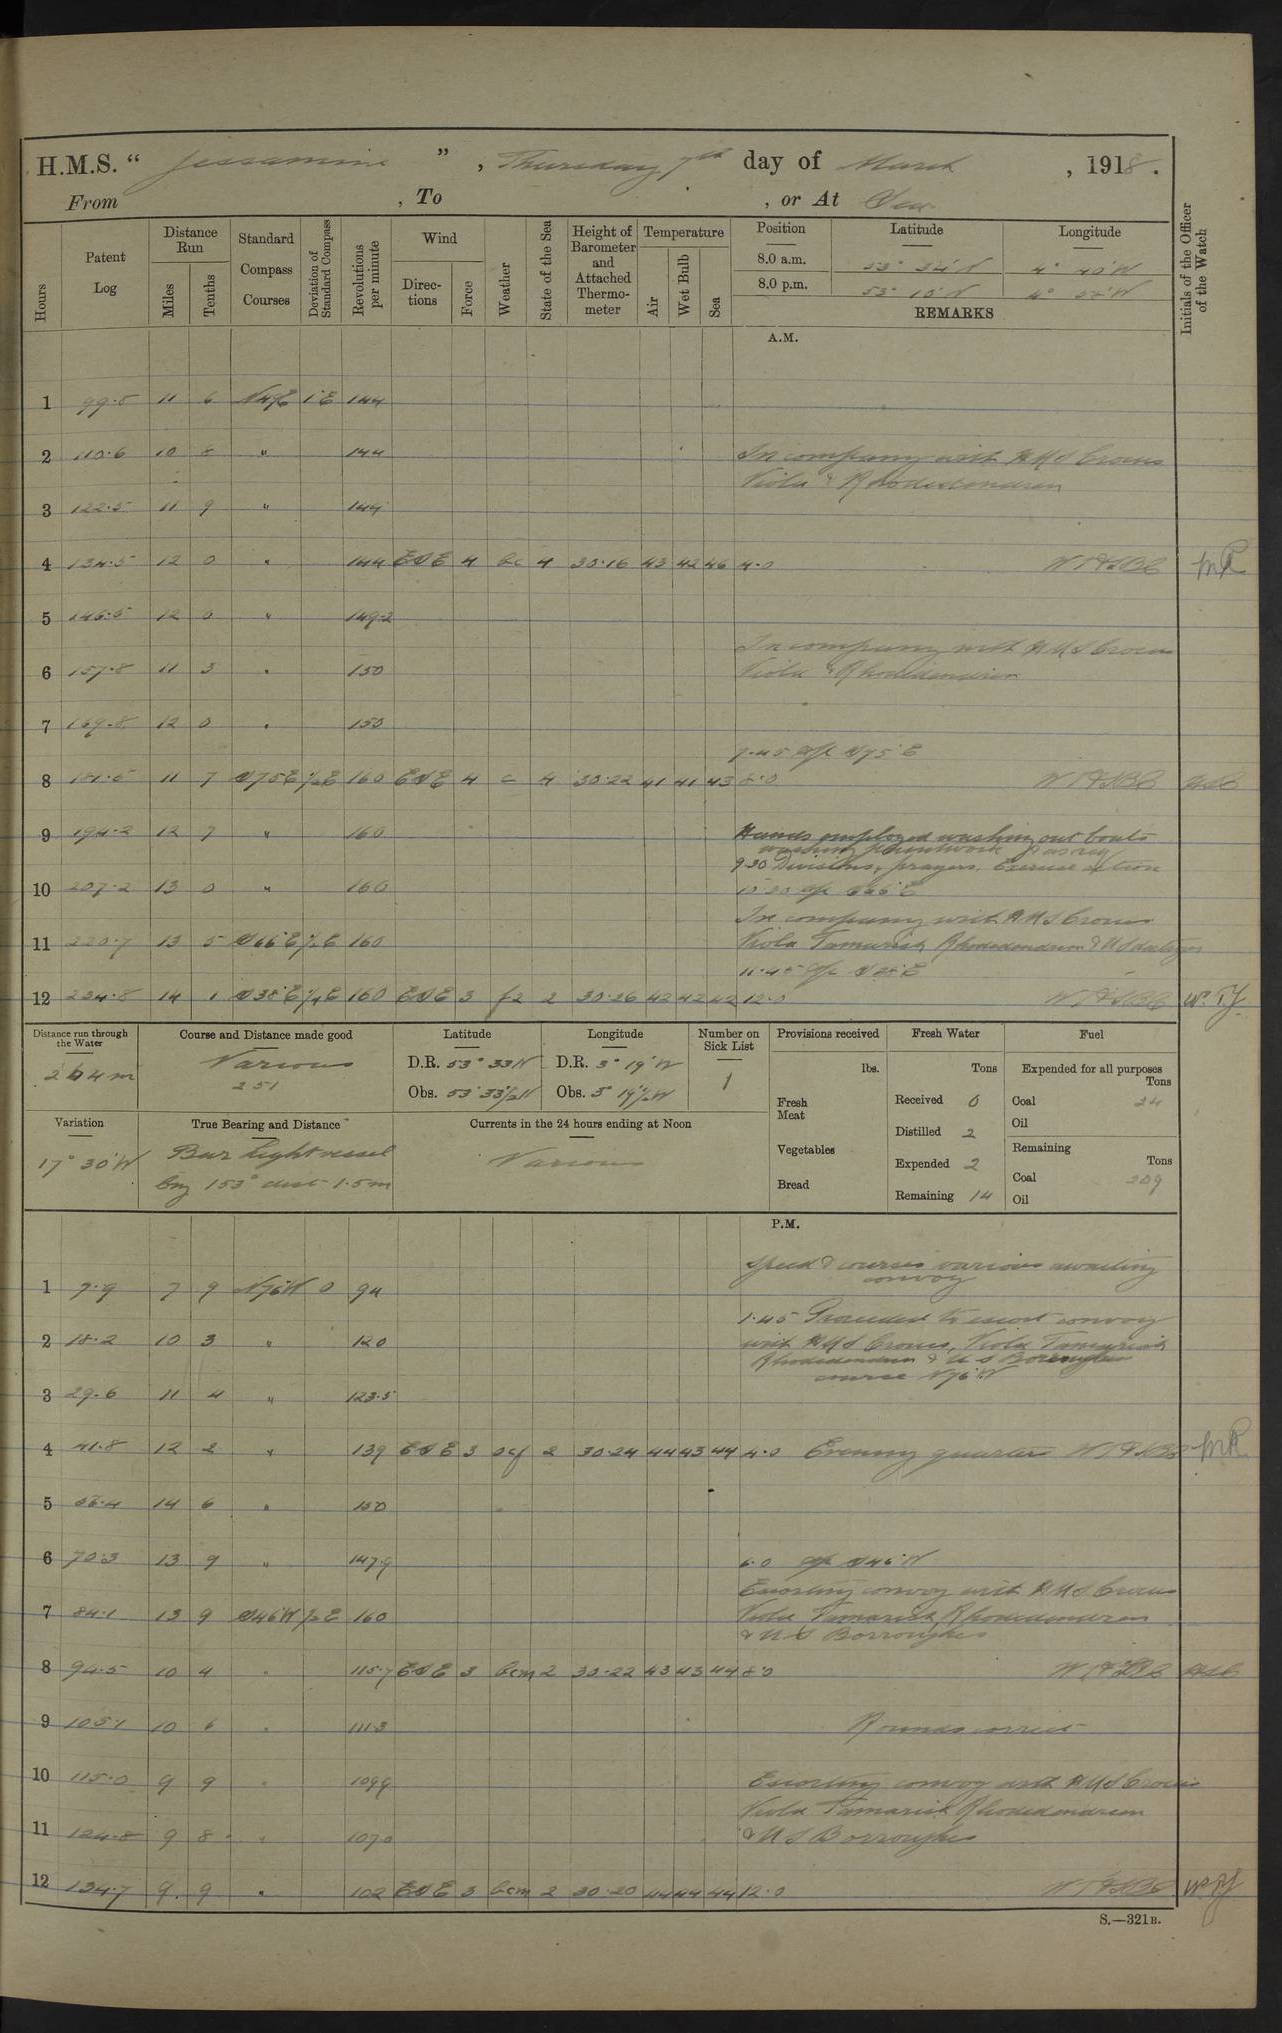 H.M.S. " Jessamine " , Thursday 7th day of March , 1918 .
From , To , or At Sea
Hours
Patent Log
Distance Run
Miles
Tenths
Standard Compass Courses
Deviation of Standard Compass
Revolutions per minute
Wind
Directions
Force
Weather
State of the Sea
Height of Barometer and Attached Thermometer
Temperature
Air
Wet Bulb
Sea
Position Latitude Longitude
8.0 a.m. 53° 34' N 4° 40' W
8.0 p.m. 53° 15' N
REMARKS
Initials of the Officer of the Watch
A.M.
1 99.5 11 6 1°E 144
2 110.6 10 " 144 In company with HMS Crocus
Viola & Rhododendron
3 122.5 11 9 " 144
4 134.5 12 0 " 144 4 bc 4 30.16 43 42 46 4.0
5 146.5 12 0 " 149.2
In company with HMS Crocus
6 157.8 11 3 " 150 Viola & Rhododendron
7 169.8 12 0 " 150
7.45 a/c N75°E
8 181.5 11 7 N75E ½E 160 4 c 4 30.22 41 41 43 8.0
9 194.2 12 7 " 160 Hands employed washing out boats
washing paintwork
9.30 Divisions, prayers. Exercise action
10 207.2 13 0 " 160
In company with HMS Crocus
11 220.7 13 5 N66°E ½E 160 Viola Tamarisk Rhododendron &
11.45 a/c
12 234.8 14 1 N38°E ¼E 160 3 f2 2 30.26 42 42 42 12.0 W.T.J.
Distance run through the Water
264 m
Course and Distance made good
Various
251
Latitude
D.R. 53° 33 N
Obs. 53° 33½ N
Longitude
D.R. 3° 19' W
Obs. 3° 19½ W
Number on Sick List
1
Provisions received
lbs.
Fresh Meat
Vegetables
Bread
Fresh Water
Tons
Received 0
Distilled 2
Expended 2
Remaining 14
Fuel
Expended for all purposes
Tons
Coal 24
Oil
Remaining
Tons
Coal 209
Oil
Variation
17° 30' W
True Bearing and Distance
Bar Light vessel
brg 153° dist 1.5 m
Currents in the 24 hours ending at Noon
Various
P.M.
Speed & courses various awaiting
convoy
1 7.9 7 9 N76°W 0 94
1.45 Proceeded to escort convoy
2 18.2 10 3 " 120 with HMS Crocus, Viola Tamarisk
Rhododendron & U S Burroughs
course N76°W
3 29.6 11 4 " 123.5
4 41.8 12 2 " 139 3 ocf 2 30.24 44 43 44 4.0 Evening quarters
5 56.4 14 6 " 150
6 70.3 13 9 " 147.9 6.0 a/c
Escorting convoy with HMS Crocus
7 84.1 13 9 ½E 160 Viola Tamarisk, Rhododendron
& U S Borroughs
8 94.5 10 4 " 115.7 3 bcm 2 30.22 43 43 44 8.0
9 105.1 10 6 " 111.3 Rounds correct
10 115.0 9 9 " 109.9 Escorting convoy with HMS Crocus
Viola Tamarisk Rhododendron
11 124.8 9 8 " 107.0 & U S Borroughs
12 134.7 9 9 " 102 3 bcm 2 30.20 44 44 44 12.0 W.T.J.
S.—321B.